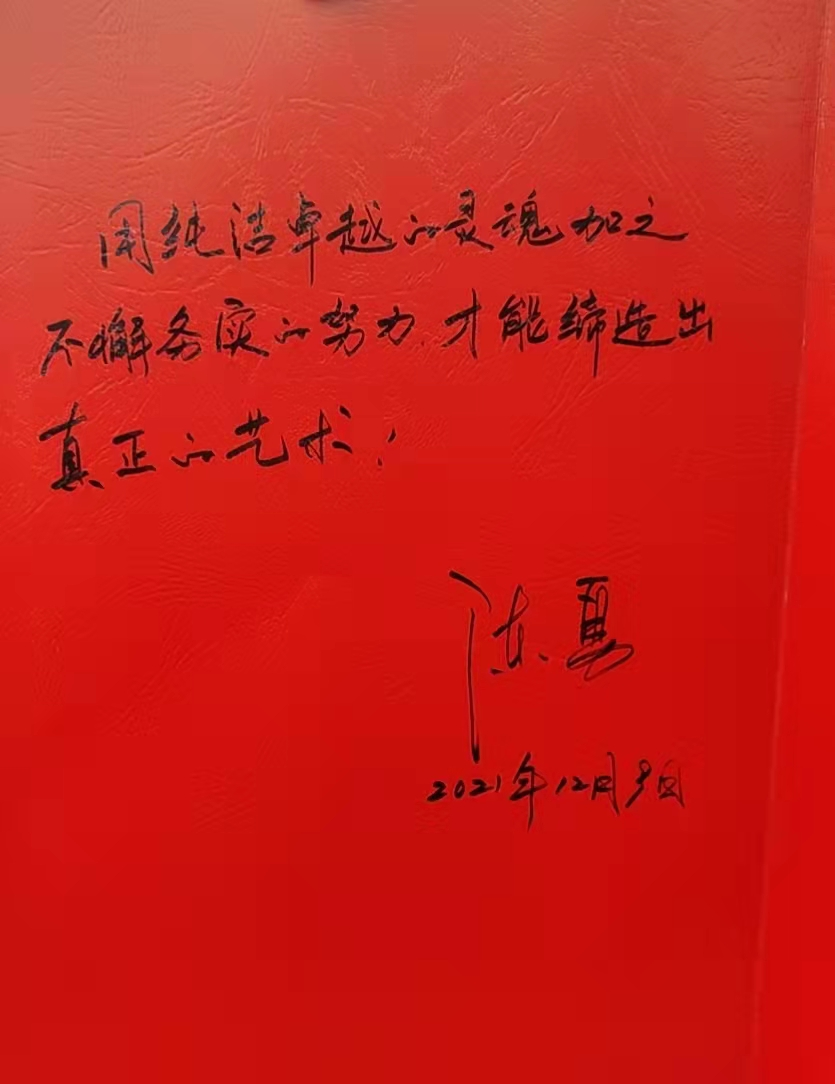 用纯洁卓越的灵魂加之
不懈务实的努力.才能缔造出
真正的艺术!
陈夏
2021年12月9日